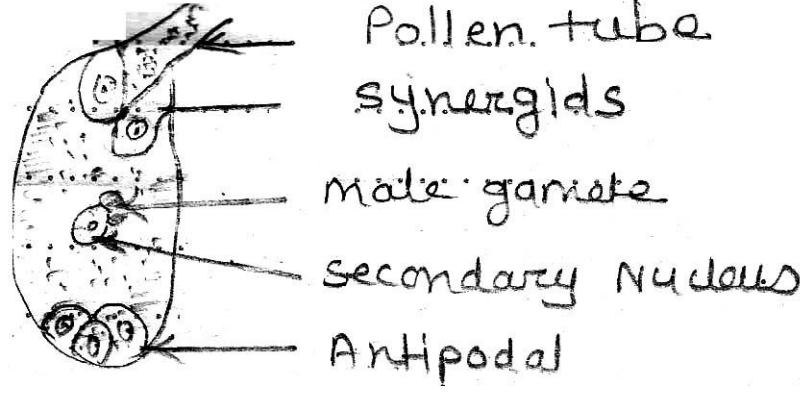 Pollen tube
Synergids
male gamete
Secondary Nucleus
Antipodal